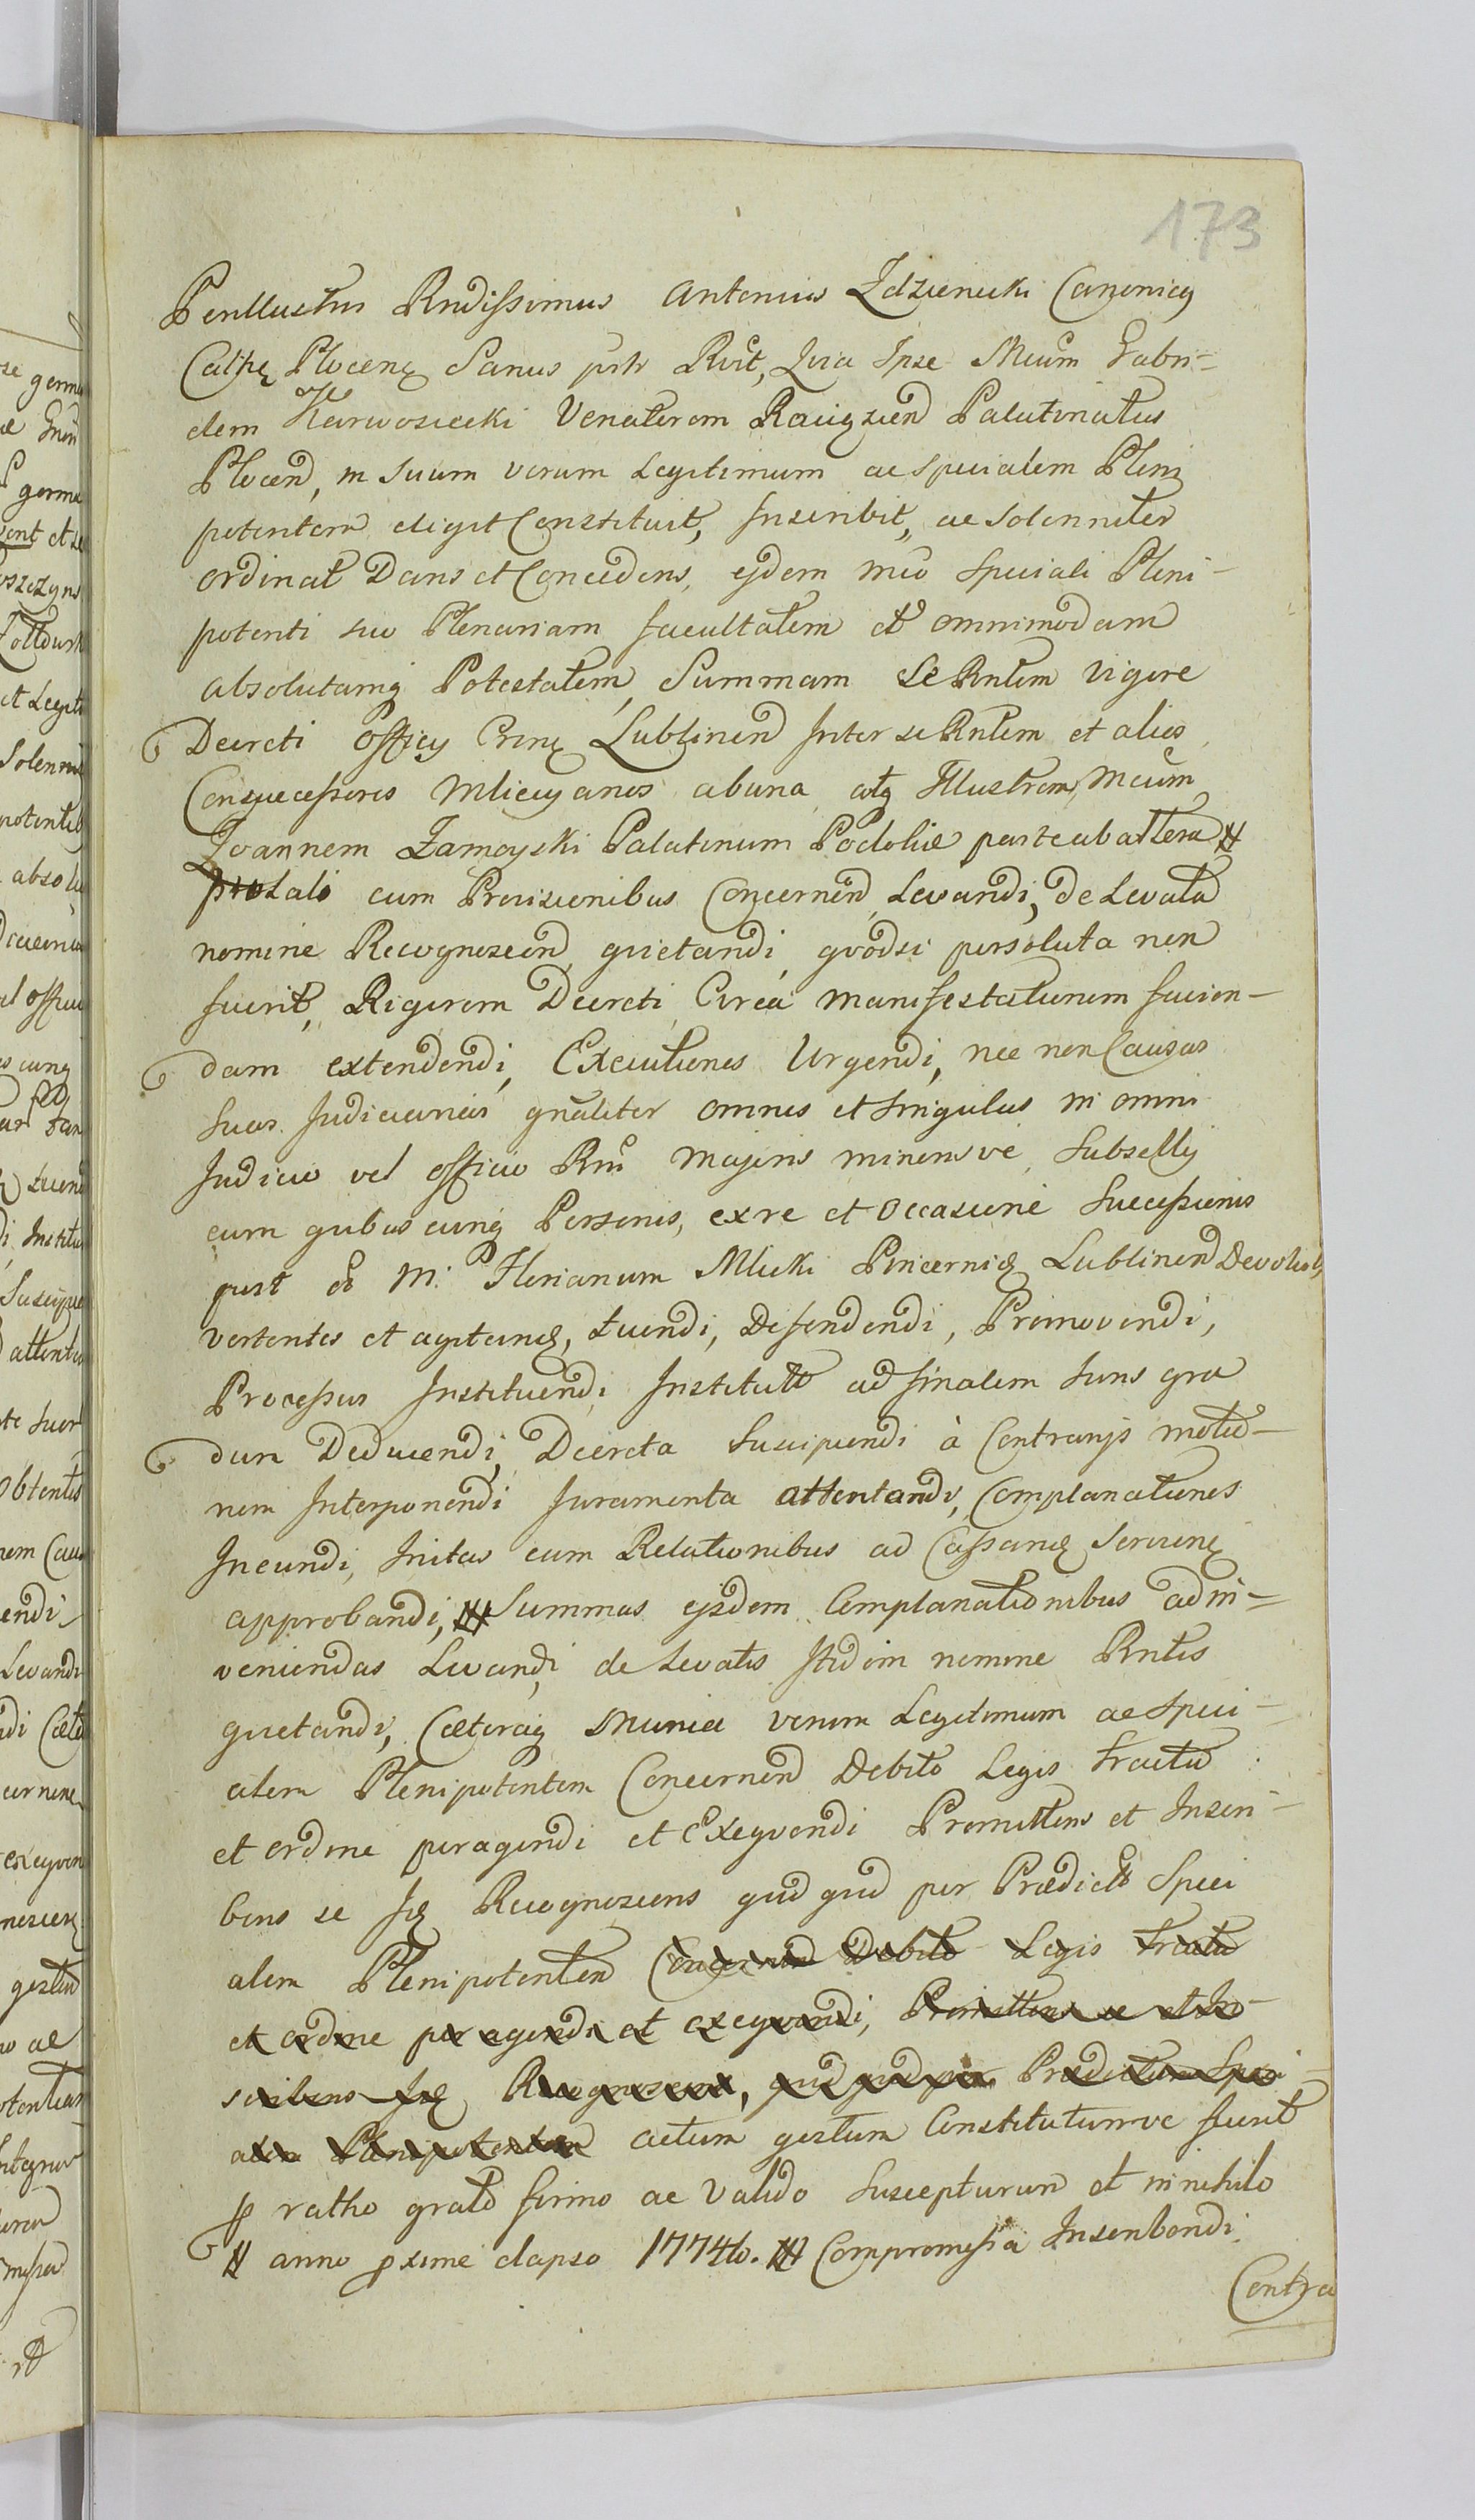 173
Perillustris Rndissimus Antonius Zdzienicki Canonicg
Cathę Plocenę Sanus pntr Rcit, Quia Ipse Mcum Gabri-
elem Karwosiecki Venatorem Rawsien Palatinatus
Plocen, in suum verum Legitimum ac specialem Pleni
potentem eligit Constituit, Inscribit, ac Solenniter
Ordinat Dans et Concedens, ejdem mco Speciali Pleni-
potenti suo Plenariam facultatem et omnimodam
absolutamq Potestatem, Summam se Rntem vigore
Decreti Officy Crens Lublinen Inter se Rntem et alios
Consuccessores Mlicijanos ab una atq Illustrem, Mcum
Joannem Zamoyski Palatinum Podolie parte ab altera #
prolato cum Provisionibus Concernen, Levandi, De Levata
nomine Recognoscen, quietandi, quodsi persoluta non
fuerit, Rigorem Decreti, Circa manifestationem facien-
dam extendendi, Executiones Urgendi, nec non Causas
Suas Judiciarias gnaliter omnes et Singulas in omni
Judicio vel officio Rni Majoris minorisve Subselly
cum quibuscunq Personis, ex re et Occasione Successionis
post M. Florianum Mlicki Pincernię Lublinen Devolut
vertentes et agitan, tuendi, Defendendi, Promovendi,
Processus Instituendi, Institut ad finalem Juris gra
dum Deducendi, Decreta Suscipiendi à Contrarijs motio-
nem Interponendi Juramenta attentandi, Complanationes
Ineundi, Initas cum Relationibus ad Cassan Servien
approbandi, ## Summas ejsdem Complanationibus adin-
veniendas Levandi, de Levatis Itidem nomine Rntis
quietandi, Cæteraq Munia verum Legitimum ac speci-
alem Plenipotentem Concernen Debito Legis tractu
et ordine peragendi et Exequendi Promittens et Inscri-
bens se Recognoscens quid quid per Prædict Speci
alem Plenipotentem Concernen Debito Legis tractu
et ordine peragendi et exequendi, Promittens se et In-
scribens Recognoscens, quid quid per Prædictum Speci-
alem Plenipotentem actum gestum Constitutumve fuerit
p ratho grato firmo ac Valido Suscepturum et in nihilo
# anno pxime elapso 1774to. ## Compromissa Inscribendi.
Contra